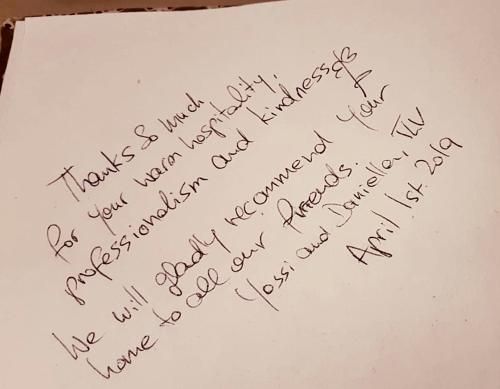 Thanks so much
for your warm hospitality,
professionalism and kindness
We will gladly recommend your
home to all our friends.
Yossi and Daniella, TLV
April 1st. 2019